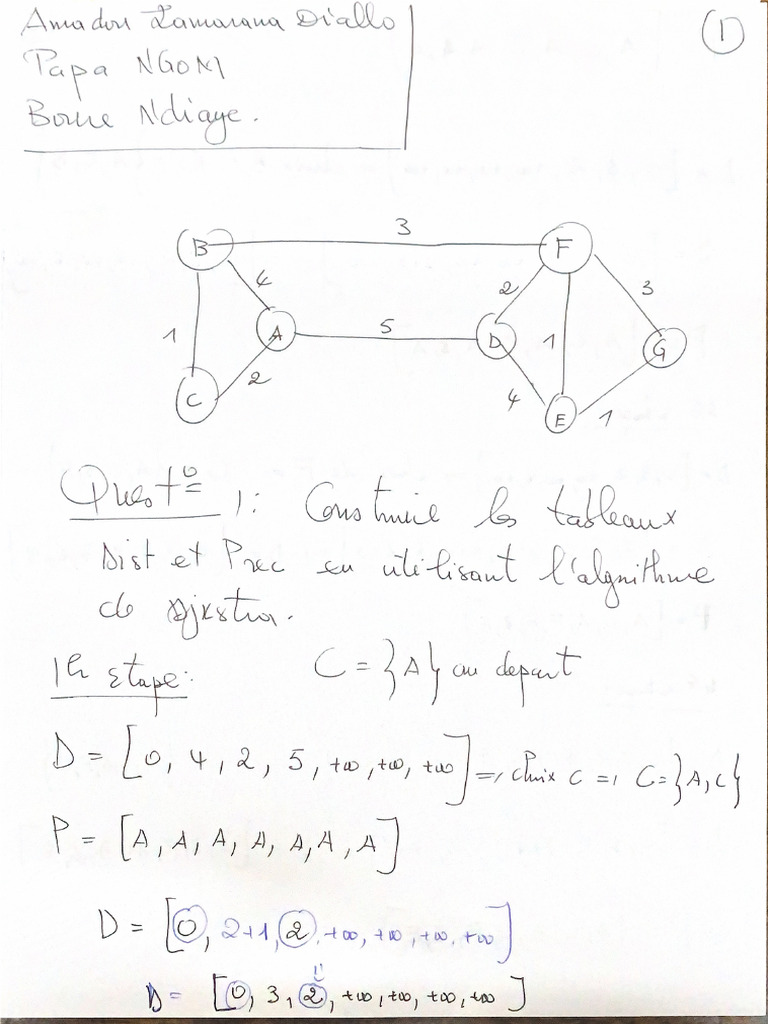 Amadou Lamarana Diallo
1
Papa NGOM
Borne Ndiaye.
B 3 F
4 2 3
1 A 5 D 1 G
C 2 4 E 1
Quest° 1: Construire les tableaux
Dist et Prec en utilisant l'algorithme
de Djkstra.
1er Etape: C = {A} au depart
D = [0, 4, 2, 5, +∞, +∞, +∞] => choix C => C = {A, C}
P = [A, A, A, A, A, A, A]
D = [0, 2+1, 2, +∞, +∞, +∞, +∞]
D = [0, 3, 2, +∞, +∞, +∞, +∞]